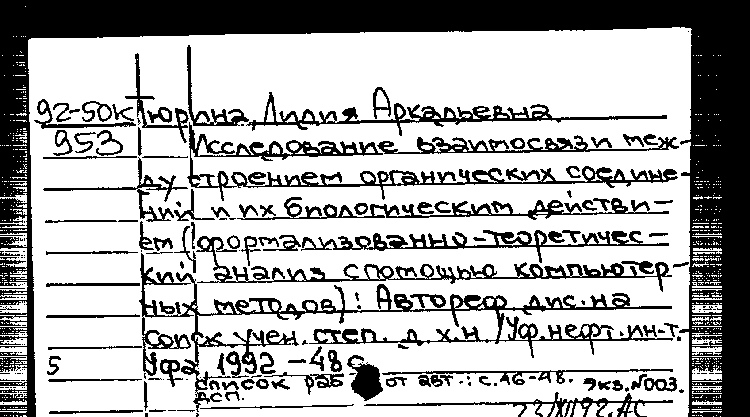 92-50к Тюрина, Лилия Аркадьевна.
953 Исследование взаимосвязи меж-
ду строением органических соедине-
ний и их биологическим действи-
ем (формализованно-теоретичес-
кий анализ с помощью компьютер-
ных методов): Автореф. дис. на
соиск. учен. степ. д. х. н /Уф. нефт. ин-т.-
5 Уфа, 1992 -48 с
Список раб от авт.: с. 46-48. Экз. №003.
ДСП.
23/XII 92. АС